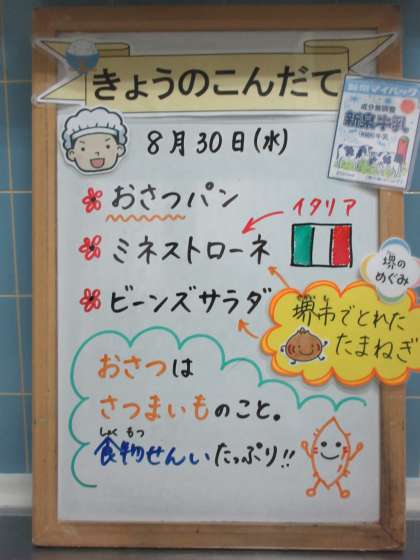 きょうのこんだて
8月30日(水)
おさつパン
イタリア
ミネストローネ
ビーンズサラダ
堺の
めぐみ
堺市でとれた
たまねぎ
おさつは
さつまいものこと。
しょくもつ
食物せんいたっぷり!!
成分無調整
新泉牛乳